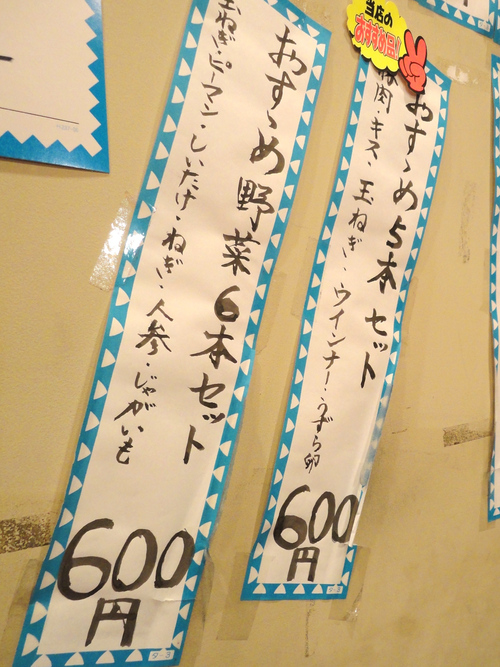 当店の
おすすめ品!
おすゝめ5本セット
豚肉・キス・玉ねぎ・ウインナー・うずら卵
600
円
おすゝめ野菜6本セット
玉ねぎ・ピーマン・しいたけ・ねぎ・人参・じゃがいも
600
円